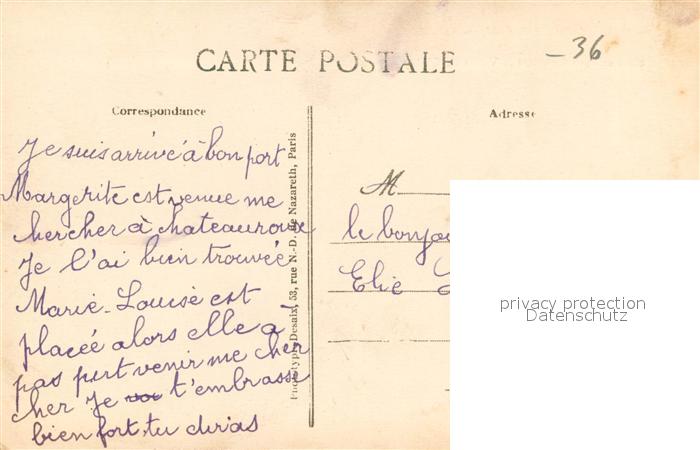 CARTE POSTALE
- 36
Correspondance
Adresse
Je suis arrivé à bon port
Margerite est venue me
chercher à chateauroux
Je l'ai bien trouvéé
Marie-Louise est
placéé alors elle a
pas put venir me cher
cher Je t'embrasse
bien fort tu diras
Phototypie Desaix, 53, rue N.-D. de Nazareth, Paris
M
le bonjou
Elie
privacy protection
Datenschutz